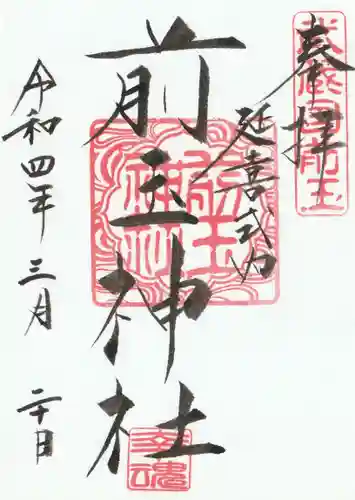 奉拝
延喜式内
前玉神社
令和四年三月二十日
武蔵国前玉
前玉神社
幸魂